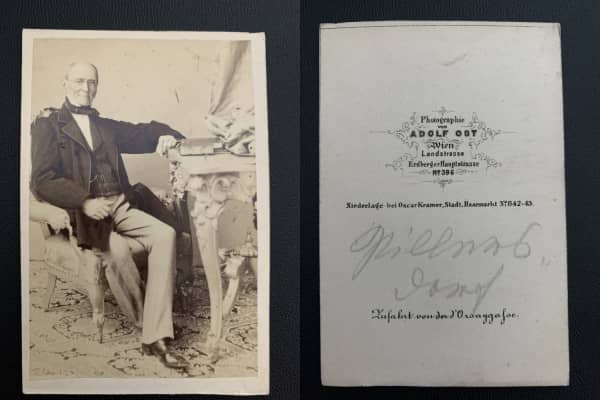 Photographie
VON
ADOLF OST
Wien
Landstrasse
Erdberger Hauptstrasse
Nº 396
Niederlage bei Oscar Kramer, Stadt, Haarmarkt Nº 642-43.
Zufahrt von der d'Orsaygasse.